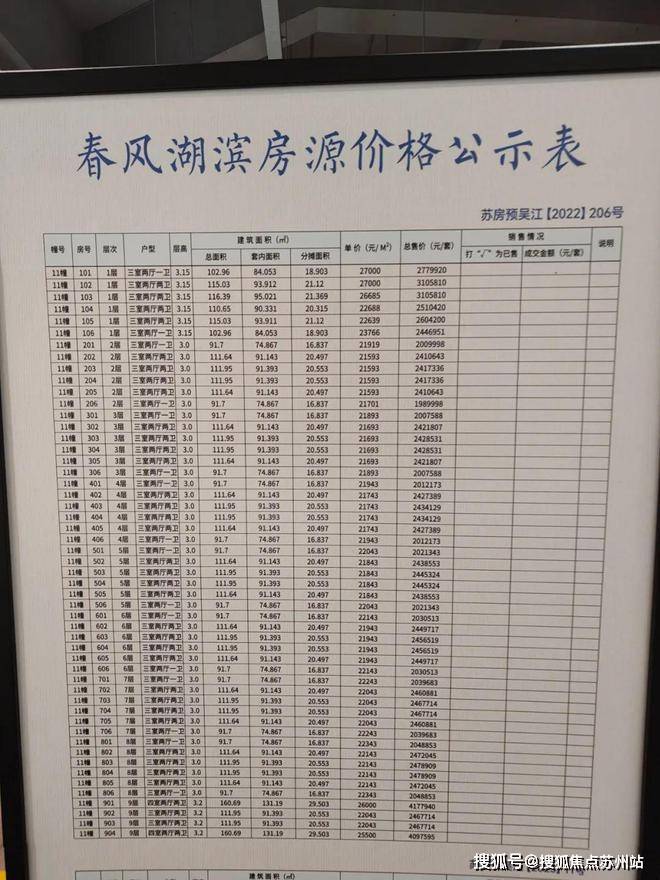 春风湖滨房源价格公示表
苏房预吴江【2022】206号
幢号 房号 层次 户型 层高 建筑面积（㎡） 单价（元/M²） 总售价（元/套） 销售情况 说明
总面积 套内面积 分摊面积 打“√”为已售 成交金额（元/套）
11幢 101 1层 三室两厅一卫 3.15 102.96 84.053 18.903 27000 2779920
11幢 102 1层 三室两厅两卫 3.15 115.03 93.912 21.12 27000 3105810
11幢 103 1层 三室两厅两卫 3.15 116.39 95.021 21.369 26685 3105810
11幢 104 1层 三室两厅两卫 3.15 110.65 90.331 20.315 22688 2510420
11幢 105 1层 三室两厅两卫 3.15 115.03 93.911 21.12 22639 2604200
11幢 106 1层 三室两厅一卫 3.15 102.96 84.053 18.903 23766 2446951
11幢 201 2层 三室两厅一卫 3.0 91.7 74.867 16.837 21919 2009998
11幢 202 2层 三室两厅两卫 3.0 111.64 91.143 20.497 21593 2410643
11幢 203 2层 三室两厅两卫 3.0 111.95 91.393 20.553 21593 2417336
11幢 204 2层 三室两厅两卫 3.0 111.95 91.393 20.553 21593 2417336
11幢 205 2层 三室两厅两卫 3.0 111.64 91.143 20.497 21593 2410643
11幢 206 2层 三室两厅一卫 3.0 91.7 74.867 16.837 21701 1989998
11幢 301 3层 三室两厅一卫 3.0 91.7 74.867 16.837 21893 2007588
11幢 302 3层 三室两厅两卫 3.0 111.64 91.143 20.497 21693 2421807
11幢 303 3层 三室两厅两卫 3.0 111.95 91.393 20.553 21693 2428531
11幢 304 3层 三室两厅两卫 3.0 111.95 91.393 20.553 21693 2428531
11幢 305 3层 三室两厅两卫 3.0 111.64 91.143 20.497 21693 2421807
11幢 306 3层 三室两厅一卫 3.0 91.7 74.867 16.837 21893 2007588
11幢 401 4层 三室两厅一卫 3.0 91.7 74.867 16.837 21943 2012173
11幢 402 4层 三室两厅两卫 3.0 111.64 91.143 20.497 21743 2427389
11幢 403 4层 三室两厅两卫 3.0 111.95 91.393 20.553 21743 2434129
11幢 404 4层 三室两厅两卫 3.0 111.95 91.393 20.553 21743 2434129
11幢 405 4层 三室两厅两卫 3.0 111.64 91.143 20.497 21743 2427389
11幢 406 4层 三室两厅一卫 3.0 91.7 74.867 16.837 21943 2012173
11幢 501 5层 三室两厅一卫 3.0 91.7 74.867 16.837 22043 2021343
11幢 502 5层 三室两厅两卫 3.0 111.64 91.143 20.497 21843 2438553
11幢 503 5层 三室两厅两卫 3.0 111.95 91.393 20.553 21843 2445324
11幢 504 5层 三室两厅两卫 3.0 111.95 91.393 20.553 21843 2445324
11幢 505 5层 三室两厅两卫 3.0 111.64 91.143 20.497 21843 2438553
11幢 506 5层 三室两厅一卫 3.0 91.7 74.867 16.837 22043 2021343
11幢 601 6层 三室两厅一卫 3.0 91.7 74.867 16.837 22143 2030513
11幢 602 6层 三室两厅两卫 3.0 111.64 91.143 20.497 21943 2449717
11幢 603 6层 三室两厅两卫 3.0 111.95 91.393 20.553 21943 2456519
11幢 604 6层 三室两厅两卫 3.0 111.95 91.393 20.553 21943 2456519
11幢 605 6层 三室两厅两卫 3.0 111.64 91.143 20.497 21943 2449717
11幢 606 6层 三室两厅一卫 3.0 91.7 74.867 16.837 22143 2030513
11幢 701 7层 三室两厅一卫 3.0 91.7 74.867 16.837 22243 2039683
11幢 702 7层 三室两厅两卫 3.0 111.64 91.143 20.497 22043 2460881
11幢 703 7层 三室两厅两卫 3.0 111.95 91.393 20.553 22043 2467714
11幢 704 7层 三室两厅两卫 3.0 111.95 91.393 20.553 22043 2467714
11幢 705 7层 三室两厅两卫 3.0 111.64 91.143 20.497 22043 2460881
11幢 706 7层 三室两厅一卫 3.0 91.7 74.867 16.837 22243 2039683
11幢 801 8层 三室两厅一卫 3.0 91.7 74.867 16.837 22343 2048853
11幢 802 8层 三室两厅两卫 3.0 111.64 91.143 20.497 22143 2472045
11幢 803 8层 三室两厅两卫 3.0 111.95 91.393 20.553 22143 2478909
11幢 804 8层 三室两厅两卫 3.0 111.95 91.393 20.553 22143 2478909
11幢 805 8层 三室两厅两卫 3.0 111.64 91.143 20.497 22143 2472045
11幢 806 8层 三室两厅一卫 3.0 91.7 74.867 16.837 22343 2048853
11幢 901 9层 四室两厅两卫 3.2 160.69 131.19 29.503 26000 4177940
11幢 902 9层 三室两厅两卫 3.2 111.95 91.393 20.553 22043 2467714
11幢 903 9层 三室两厅两卫 3.2 111.95 91.393 20.553 22043 2467714
11幢 904 9层 四室两厅两卫 3.2 160.69 131.19 29.503 25500 4097595
建筑面积（㎡）
搜狐号@搜狐焦点苏州站